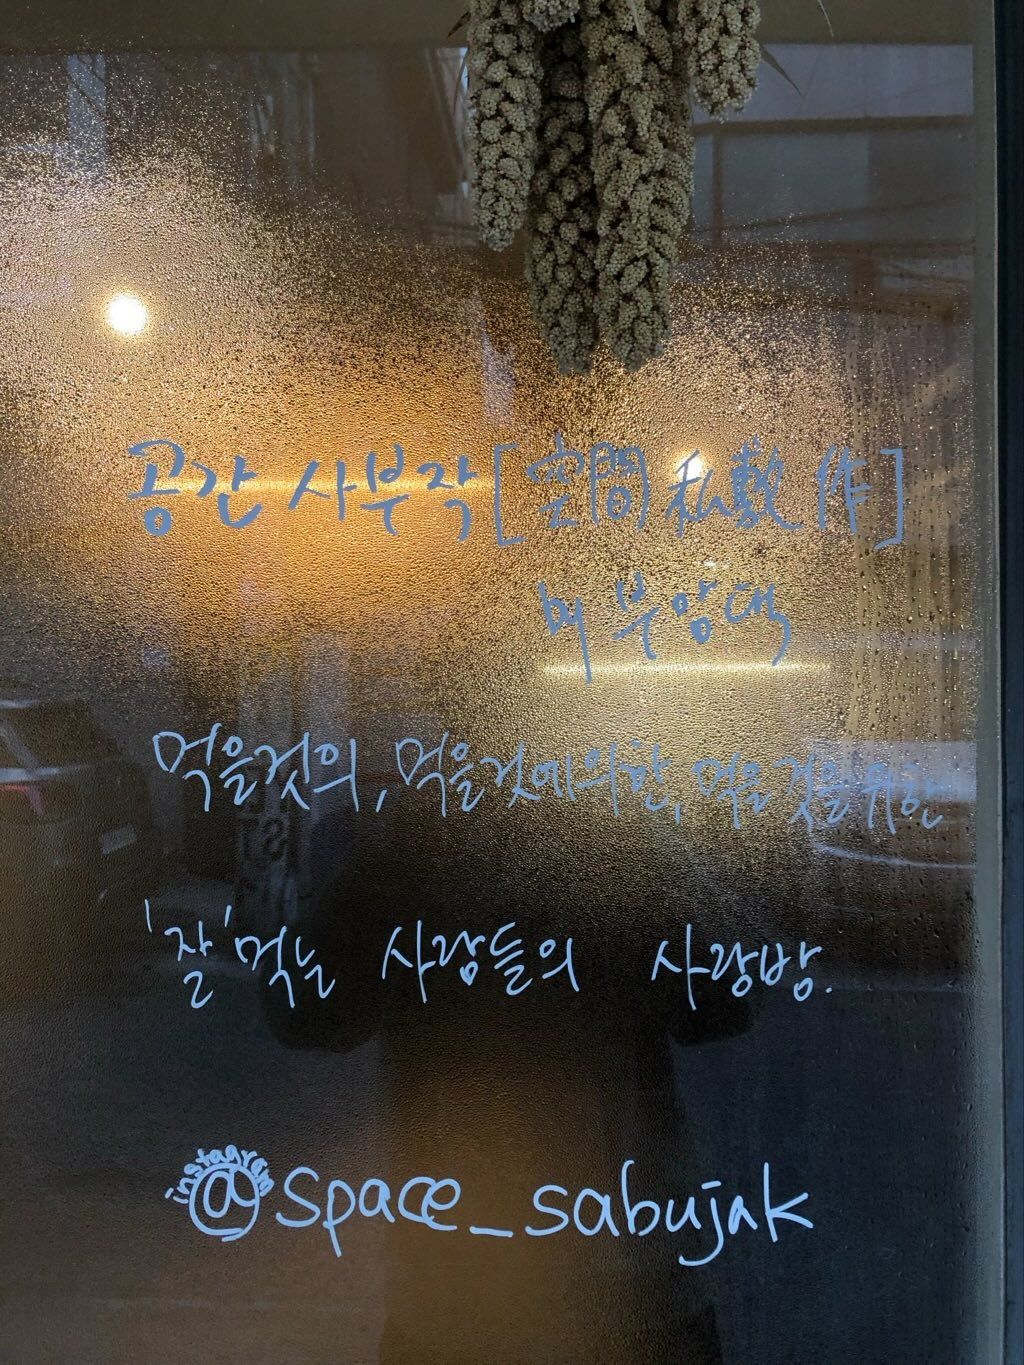 공간 사부작 [空間 私敷作]
by 부암댁
먹을것의, 먹을것에의한, 먹을것을위한
'잘'먹는 사람들의 사랑방.
instagram
@space_sabujak